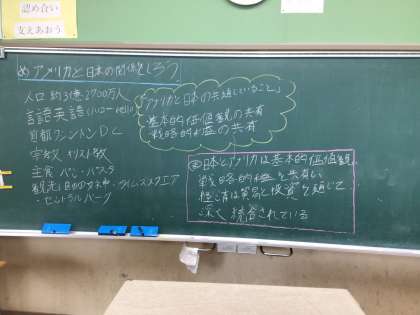 認め合い
支えあおう
め アメリカと日本の関係をしろう
人口 約3億2700万人
言語 英語 (ハロー hello)
首都 ワシントンDC
宗教 キリスト教
主食 パン・パスタ
観光 自由の女神・タイムズスクエア
・セントラルパーク
「アメリカと日本の共通していること」
・基本的価値観の共有
・戦略的利益の共有
ま 日本とアメリカは基本的価値観、
戦略的利益を共有し、
経済は貿易と投資を通じて
深く統合されている